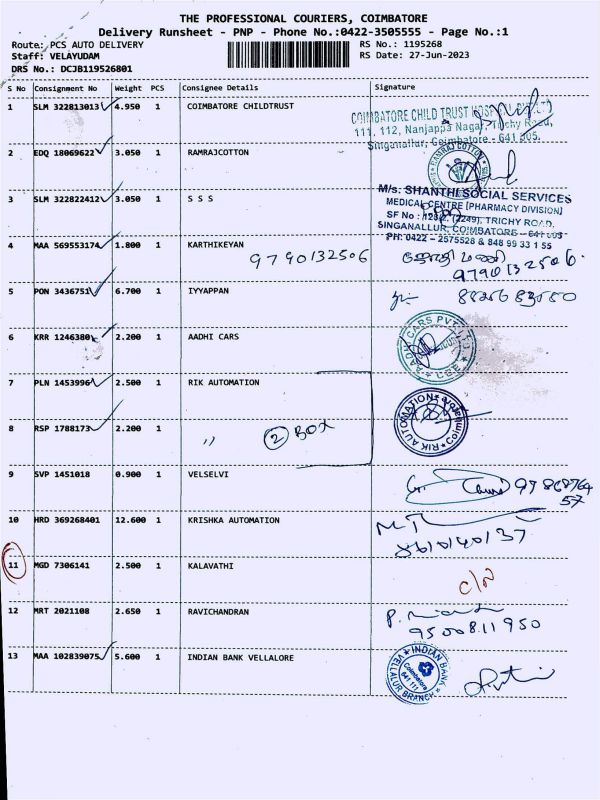 THE PROFESSIONAL COURIERS, COIMBATORE
Delivery Runsheet - PNP - Phone No.:0422-3505555 - Page No.:1
Route: PCS AUTO DELIVERY RS No.: 1195268
Staff: VELAYUDAM RS Date: 27-Jun-2023
DRS No.: DCJB119526801
S No Consignment No Weight PCS Consignee Details Signature
1 SLM 322813013 4.950 1 COIMBATORE CHILDTRUST
COIMBATORE CHILD TRUST
111, 112, Nanjappa Nagar, Trichy Road,
Singanallur, Coimbatore - 641 005.
2 EDQ 18069622 3.050 1 RAMRAJCOTTON
RAMRAJ COTTON
3 SLM 322822412 3.050 1 S S S
M/s. SHANTHI SOCIAL SERVICES
MEDICAL CENTRE [PHARMACY DIVISION]
TRICHY ROAD,
SINGANALLUR, COIMBATORE
PH: 0422 - 2575528 & 848 99 33 1 55
4 MAA 569553174 1.800 1 KARTHIKEYAN
9790132506
9790132506
5 PON 3436751 6.700 1 IYYAPPAN
6 KRR 1246380 2.200 1 AADHI CARS
AADHI CARS PVT LTD
CBE
7 PLN 1453996 2.500 1 RIK AUTOMATION
RIK AUTOMATION
8 RSP 1788173 2.200 1 〃 2 BOX
9 SVP 1451018 0.900 1 VELSELVI
10 HRD 369268401 12.600 1 KRISHKA AUTOMATION
8610140137
11 MGD 7306141 2.500 1 KALAVATHI
12 MRT 2021108 2.650 1 RAVICHANDRAN
9500811950
13 MAA 102839075 5.600 1 INDIAN BANK VELLALORE
INDIAN BANK
Coimbatore
641 111
VELLALUR BRANCH